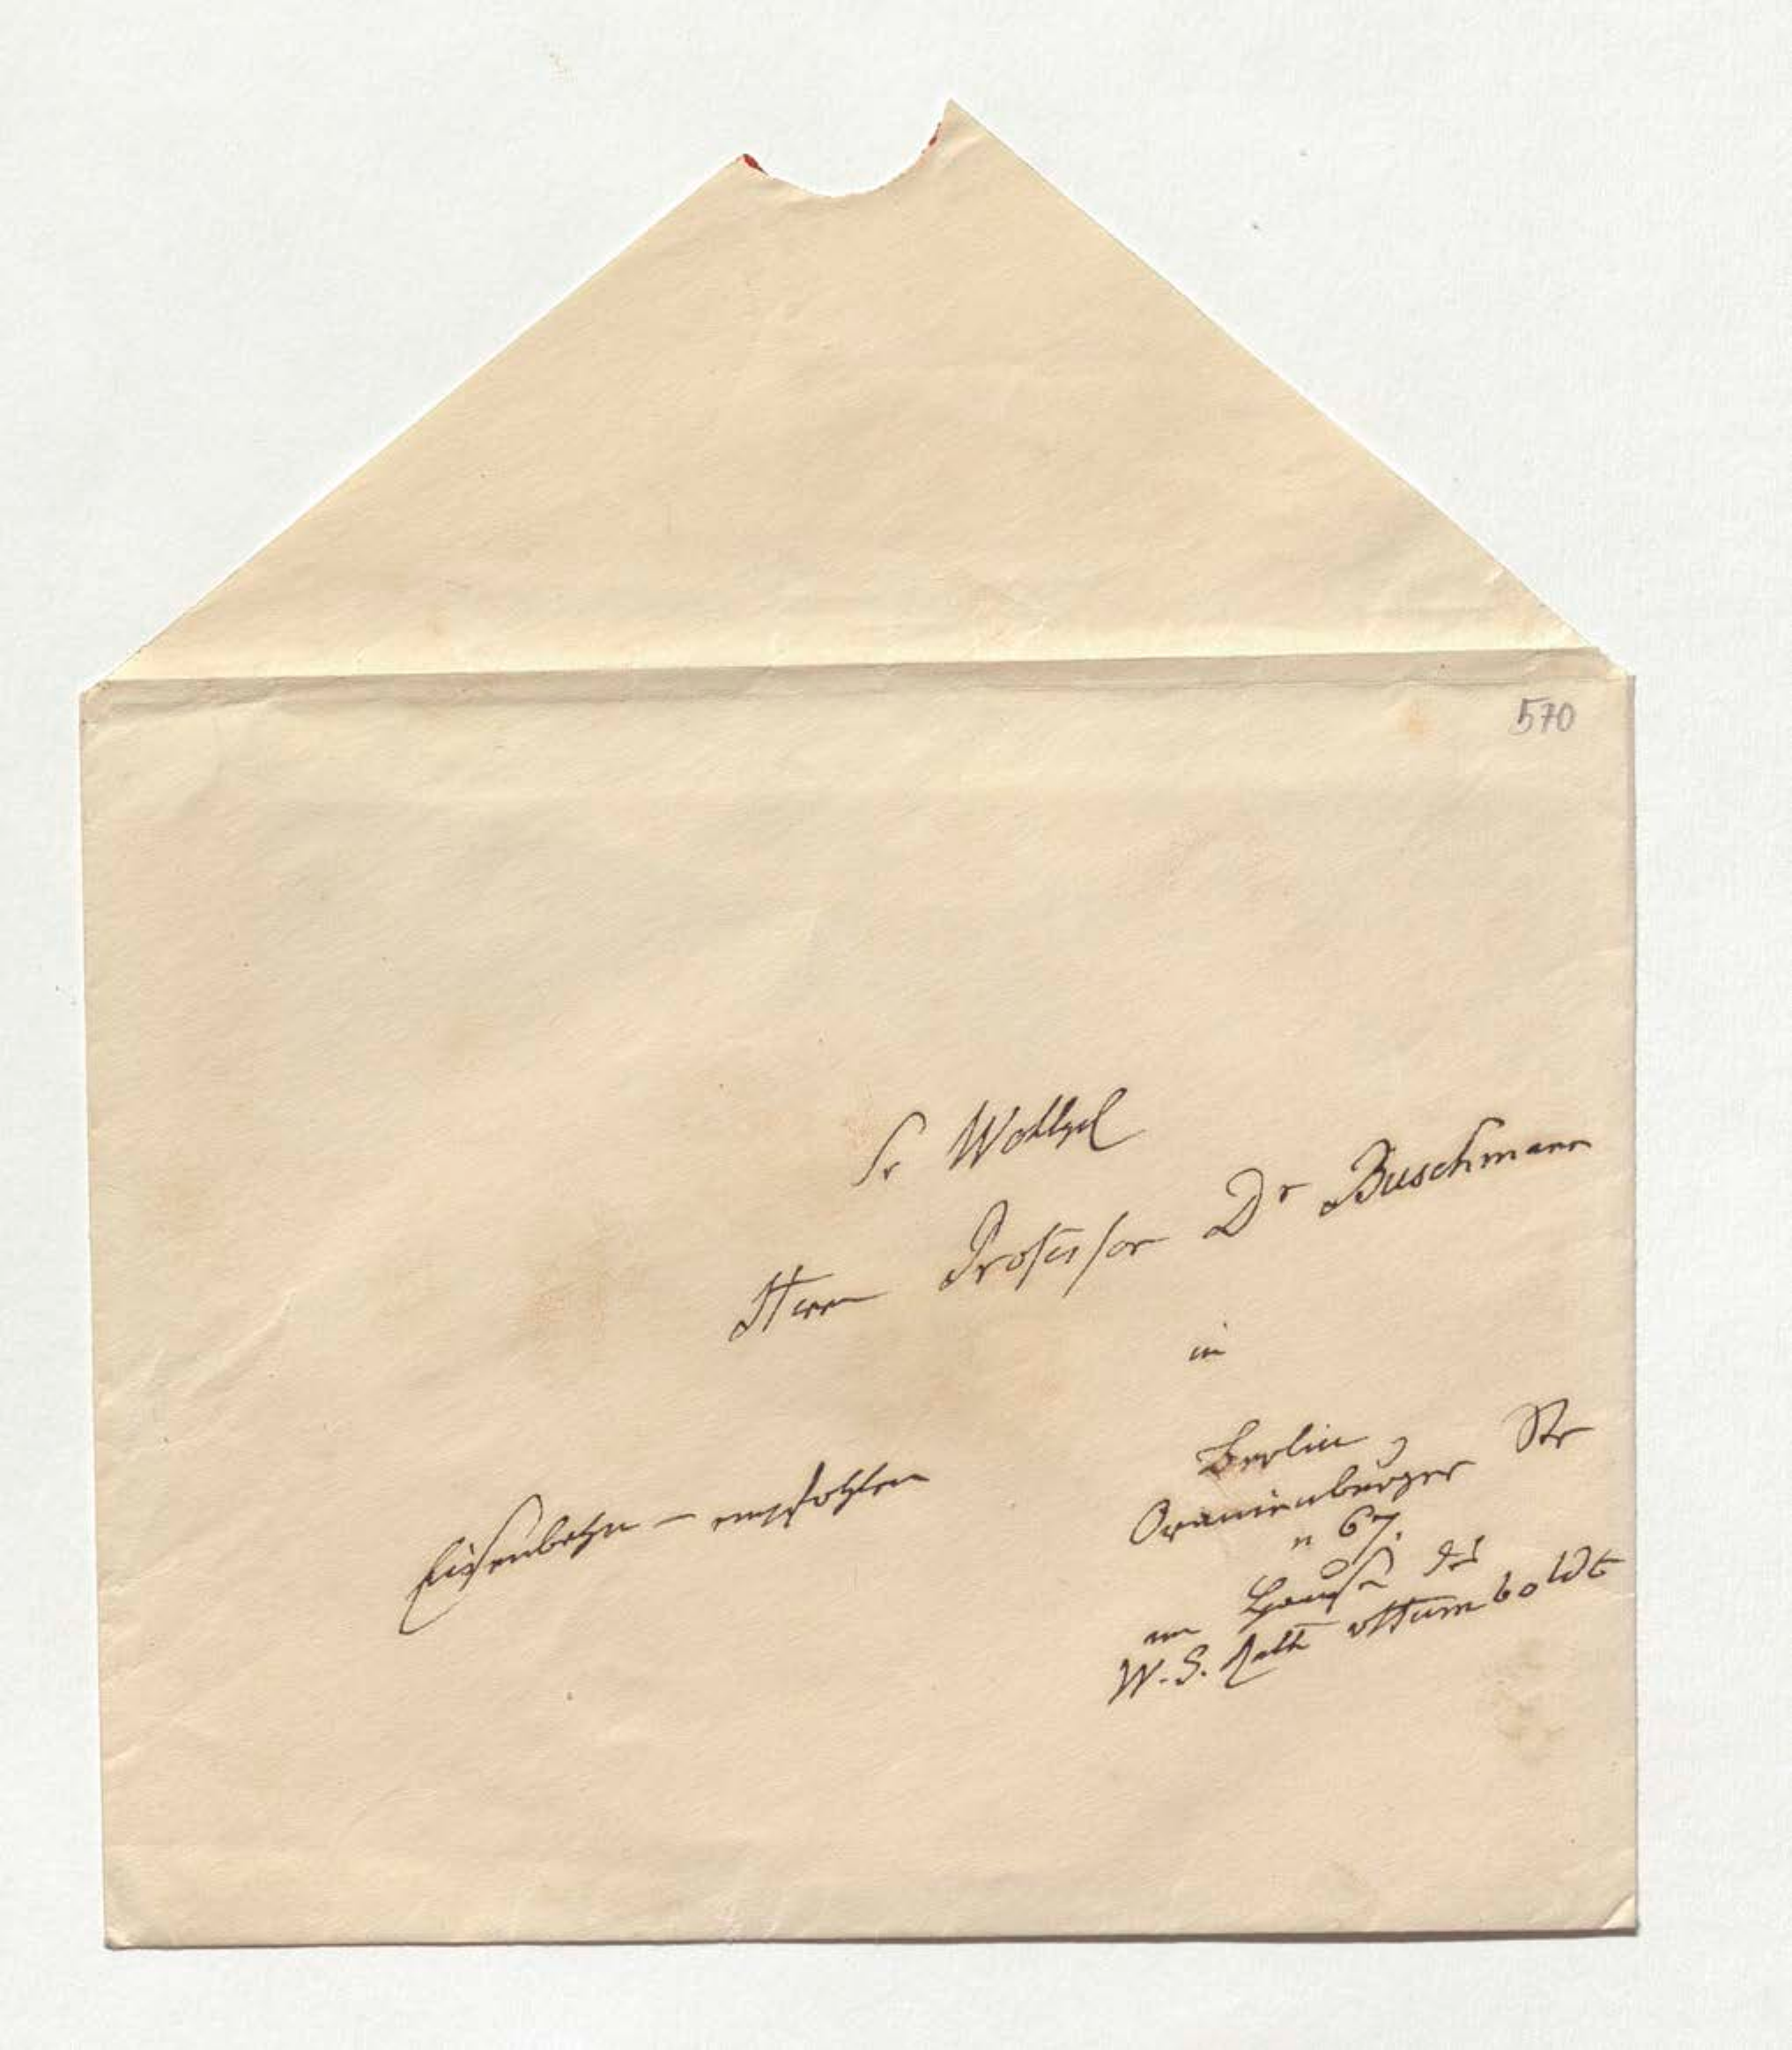 570
Sr Wohlgel
Herrn Professor Dr Buschmann
in
Berlin,
Oranienburger Str
n 67.
im Hause des
W. G. Rath vHumboldt
Eisenbahn – empfohlen